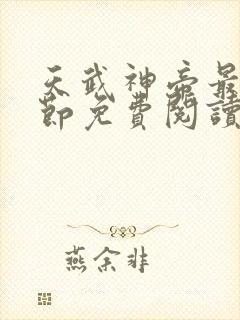 天武神帝最
節免費閱讀
燕余非